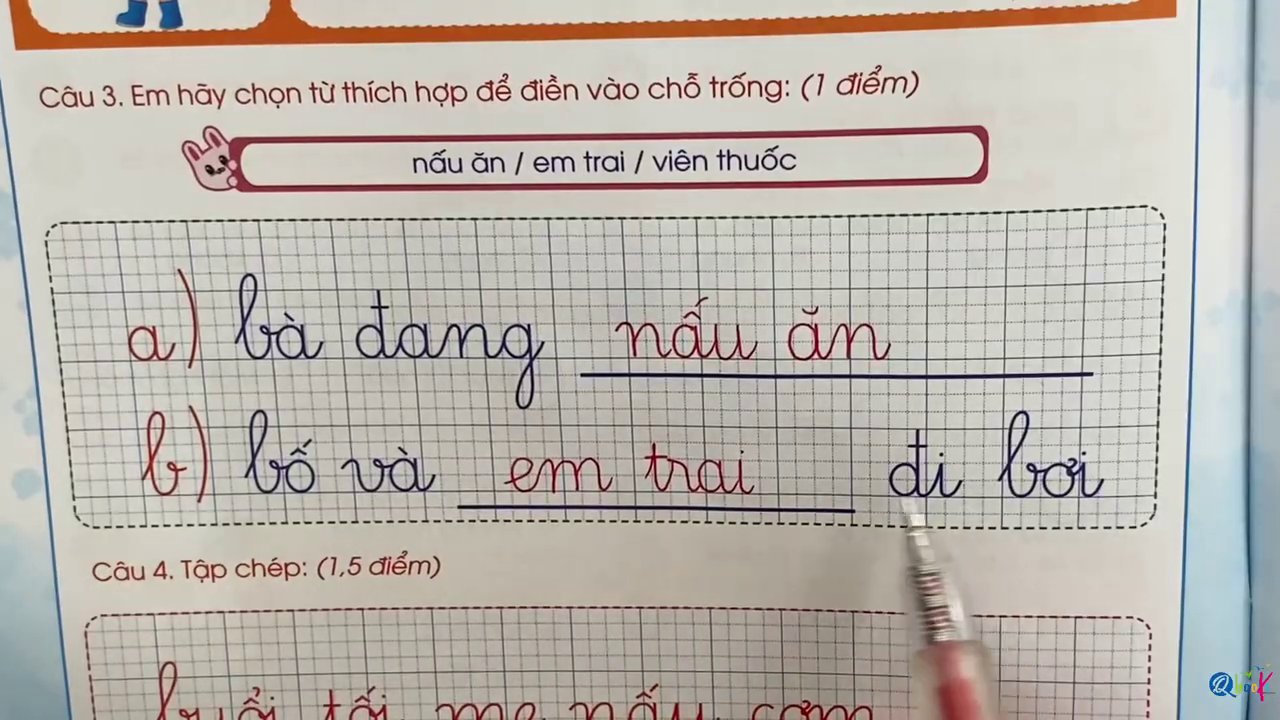 Câu 3. Em hãy chọn từ thích hợp để điền vào chỗ trống: (1 điểm)
nấu ăn / em trai / viên thuốc
a) bà đang nấu ăn
b) bố và em trai đi bơi
Câu 4. Tập chép: (1,5 điểm)
buổi tối mẹ nấu cơm
QbooK